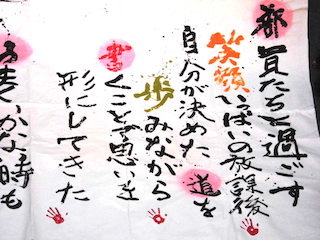 部員たちと過ごす
笑顔いっぱいの放課後
自分が決めた道を
歩みながら
書くことで思いを
形にしてきた
うまくいかない時も